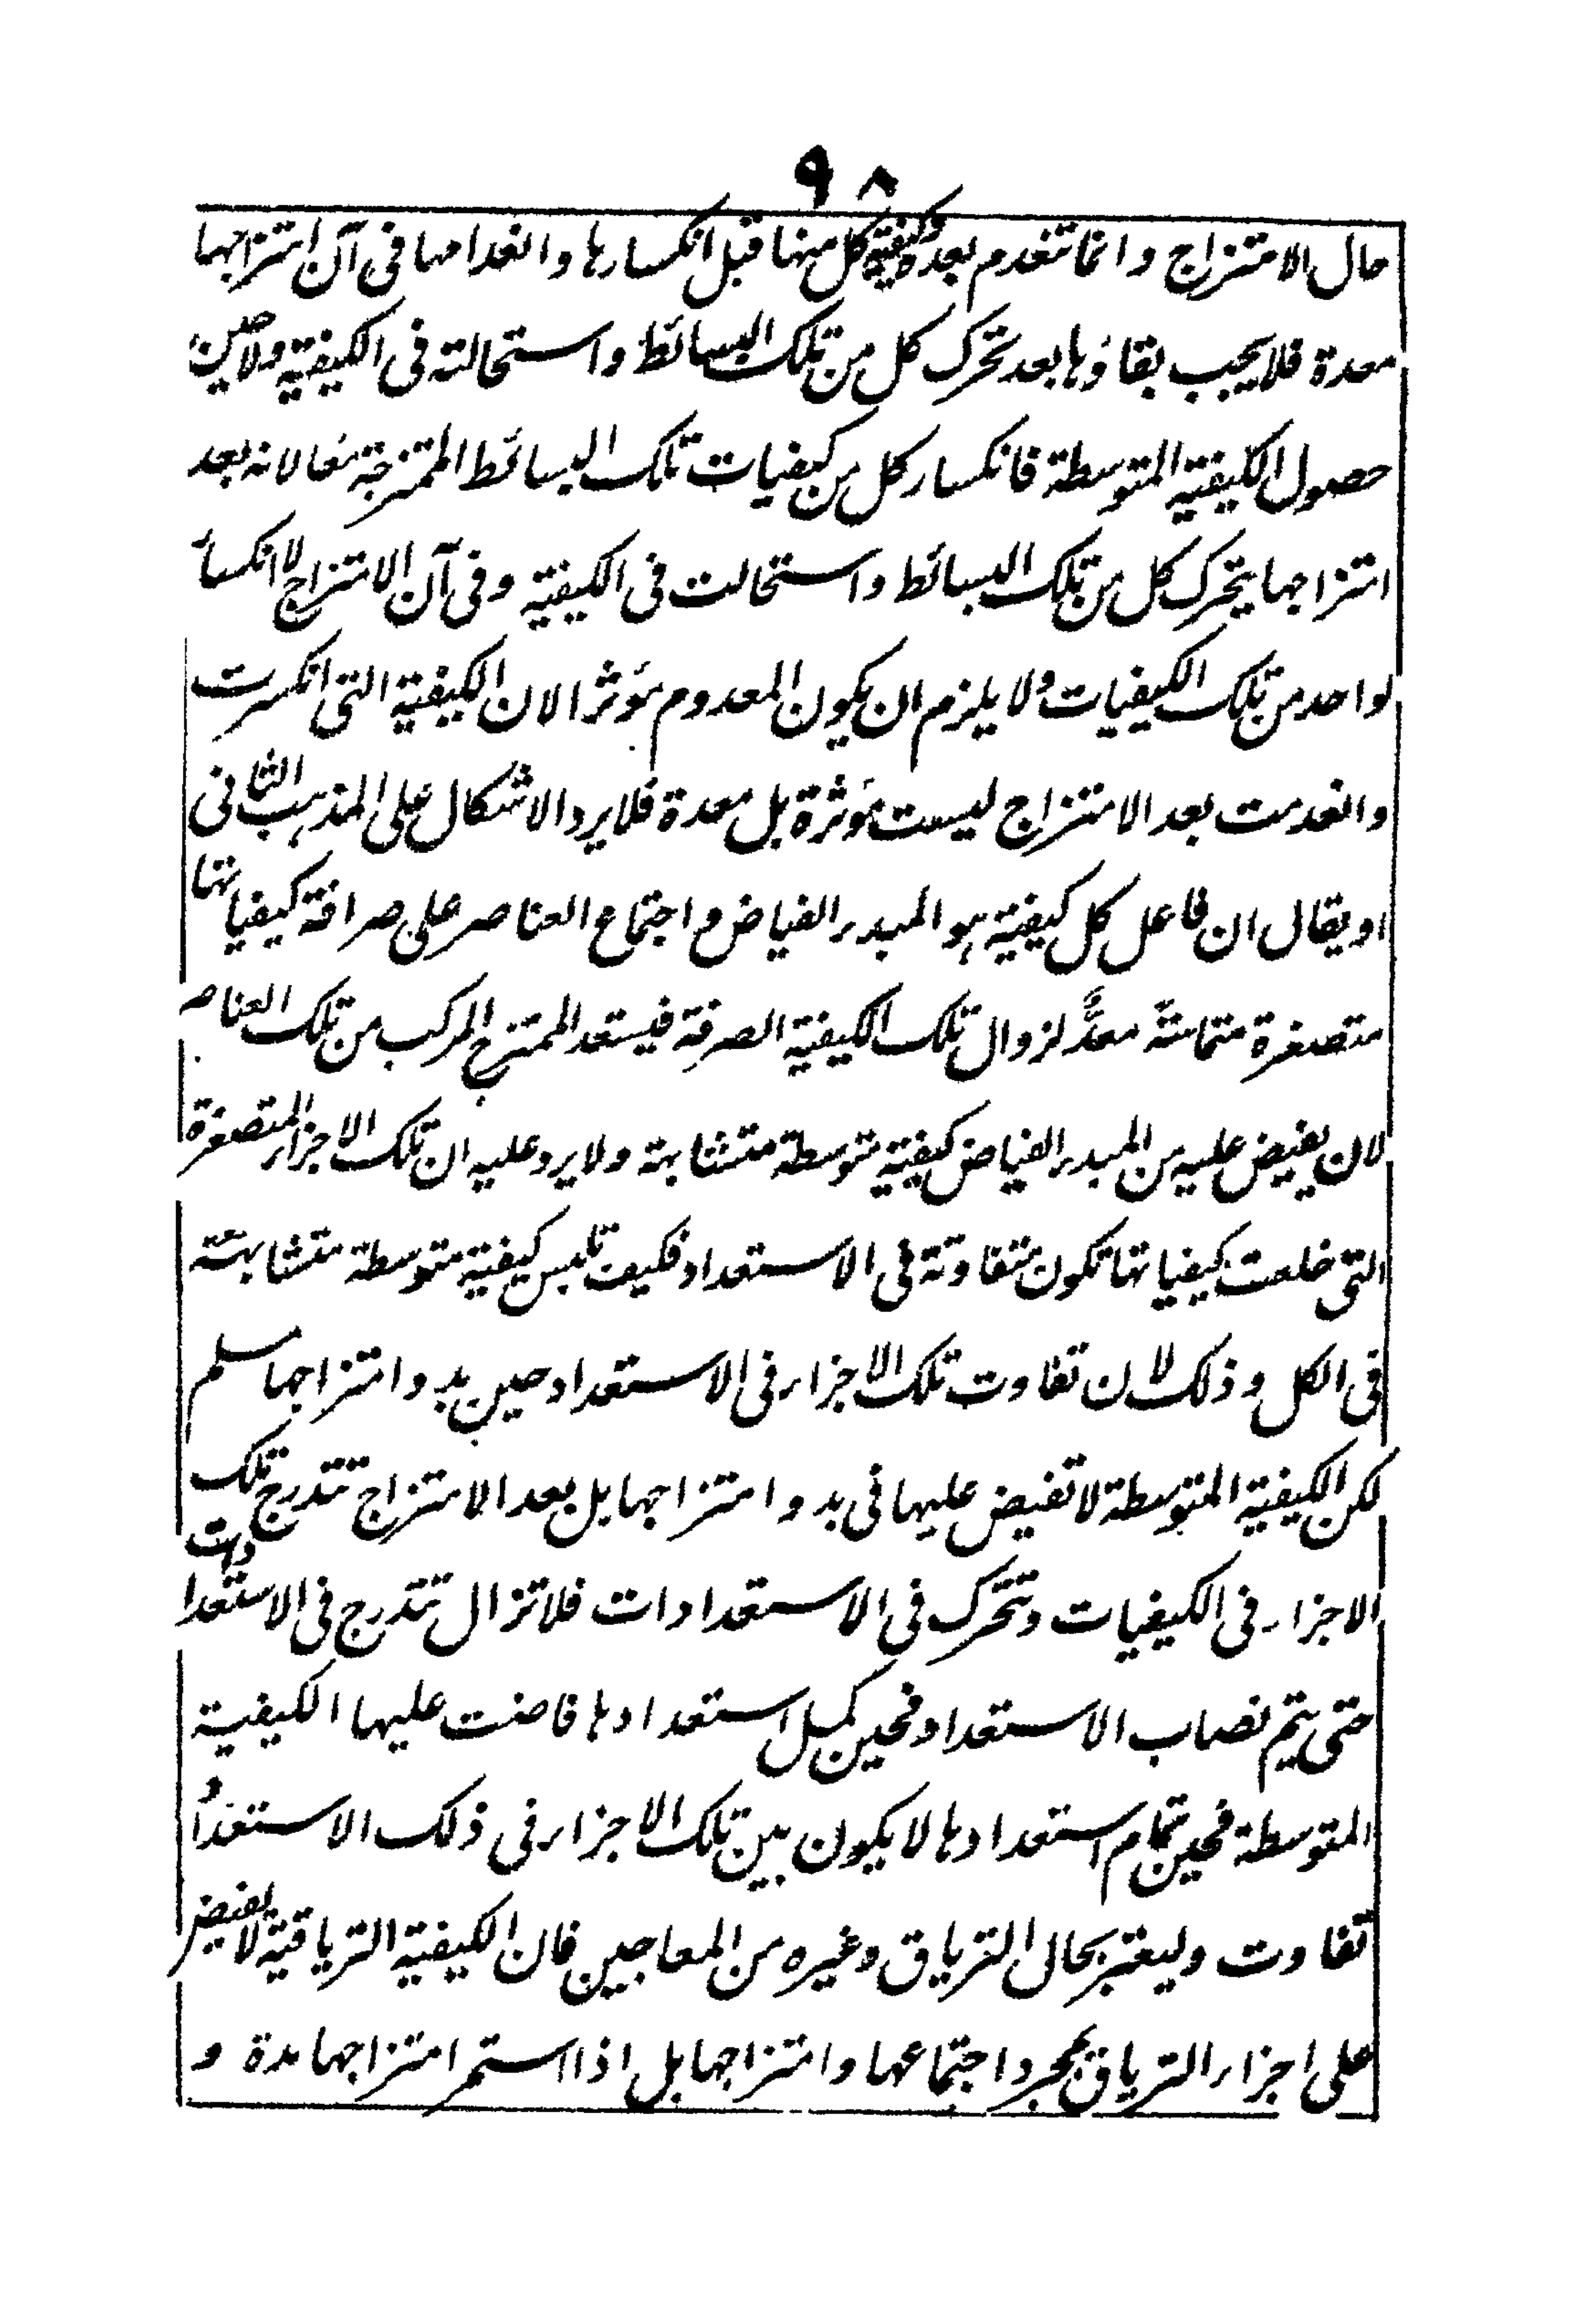 ٩٨
حال الامتزاج وانما تنعدم بعده وكيفية كل منها قبل انكسارها وانعدامها فى آن امتزاجها
معدة فلا يجب بقاؤها بعد تحرك كل من تلك البسائط واستحالته فى الكيفية ولا حين
حصول الكيفية المتوسطة فانكسار كل من كيفيات تلك البسائط الممتزجة معا لانه بعد
امتزاجها يتحرك كل من تلك البسائط واستحالت فى الكيفية وفى آن الامتزاج لا انكسار
لواحد من تلك الكيفيات ولا يلزم ان يكون المعدوم مؤثرا لان الكيفية التى انكسرت
وانعدمت بعد الامتزاج ليست مؤثرة بل معدة فلا يرد الاشكال على المذهب الثانى
او يقال ان فاعل كل كيفية هو المبدء الفياض واجتماع العناصر على صرافة كيفياتها
متصغرة متماسة معدٌّ لزوال تلك الكيفية الصرفة فيستعد الممتزج المركب من تلك العناصر
لان يفيض عليه من المبدء الفياض كيفية متوسطة متشابهة ولا يرد عليه ان تلك الاجزاء المتصغرة
التى خلعت كيفياتها تكون متفاوتة فى الاستعداد فكيف تلبس كيفية متوسطة متشابهة
فى الكل وذلك لان تفاوت تلك الاجزاء فى الاستعداد حين بدو امتزاجها مسلم
لكن الكيفية المتوسطة لا تفيض عليها فى بدو امتزاجها بل بعد الامتزاج تتدرج تلك
الاجزاء فى الكيفيات وتتحرك فى الاستعدادات فلا تزال تتدرج فى الاستعدادات
حتى يتم نصاب الاستعداد فحين كمل استعدادها فاضت عليها الكيفية
المتوسطة فحين تمام استعدادها لا يكون بين تلك الاجزاء فى ذلك الاستعداد
تفاوت وليعتبر بحال الترياق وغيره من المعاجين فان الكيفية الترياقية لا يفيض
على اجزاء الترياق بمجرد اجتماعها وامتزاجها بل اذا استمر امتزاجها مدة و